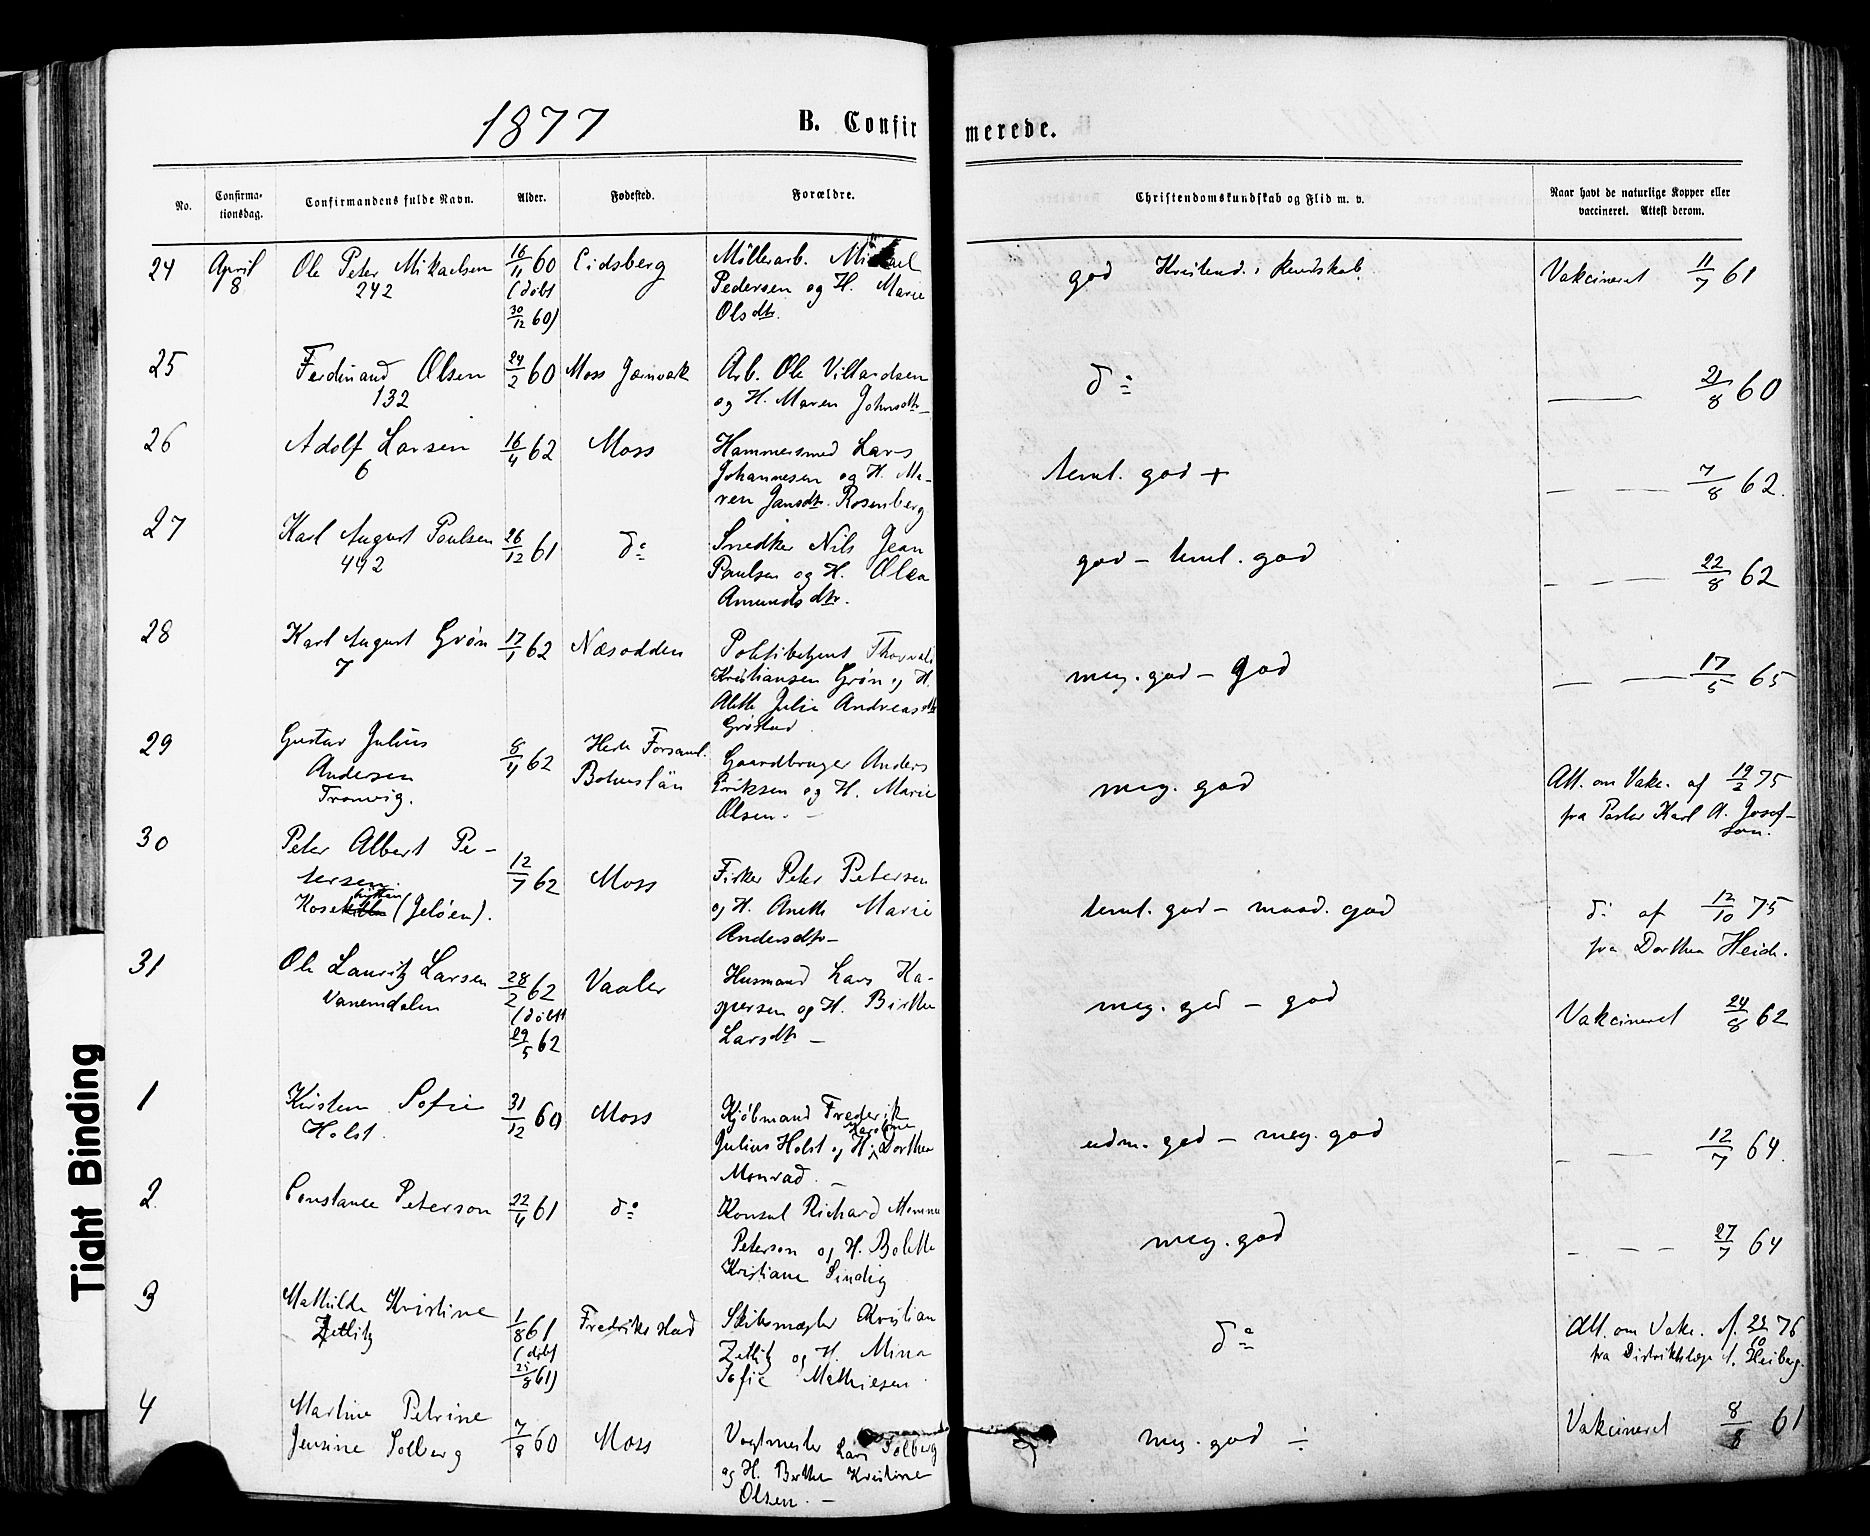 1877
B. Confirmerede.
No. Confirmationsdag. Confirmandens fulde Navn. Alder. Fødested. Forældre. Christendomskundskab og Flid m. v. Naar havt de naturlige Kopper eller vaccineret. Attest derom.
24 April 8 Ole Peter Mikaelsen 16/11 60 Eidsberg Möllerarb. Mikael god Kristend.s kundskab. Vakcineret 11/7 61
242 (döbt Pedersen og H. Marie
30/12 60) Olsdtr.
25 Ferdinand Olsen 24/2 60 Moss Jernverk Arb. Ole Villardsen do — 21/8 60
132 og H. Maren Johnsdtr—
26 Adolf Larsen 16/4 62 Moss Hammersmed Lars teml. god + — — 7/8 62.
6 Johannesen og H. Ma-
ren Jansdtr. Rosenberg
27 Karl August Paulsen 26/12 61 do Snedker Nils Jean god – teml. god — — — 22/8 62
442 Paulsen og H. Olea
Amundsdtr.
28 Karl August Grøn 17/1 62 Næsodden Politibetjent Thorvald meg. god – god — — 17/5 65
7 Kristiansen Grøn og H.
Alette Julie Andreasdtr
Grøstad.
29 Gustav Julius 8/4 62 Hede Forsaml. Gaardbruger Anders meg. god Att. om Vakc. af 19/2 75
Andersen Bohuslän Eriksen og H. Marie fra Pastor Karl A. Josef-
Tronvig. Olsen. – son.
30 Peter Albert Pe- 12/7 62 Moss Fisker Peter Petersen teml. god – maad. god do af 12/10 75
tersen. og H. Anette Marie fra Dorthea Heide.
(Jeløen). Andersdtr–
31 Ole Lauritz Larsen 28/2 62 Vaaler Husmand Lars Ka- meg. god – god Vakcineret 24/8 62
Vanemdalen (döbt spersen og H. Birthe
29/5 62 Larsdtr –
1 Kirsten Sofie 31/12 60 Moss Kjöbmand Frederik udm. god – meg. god – — 12/7 64.
Holst. Julius Holst og H. Karoline Dorthea
Monrad. –
2 Constance Peterson 22/4 61 do Konsul Richard Momme meg. god – — – 27/7 64
Peterson og H. Bolette
Kristiane Sindig
3 Mathilde Kristine 1/8 61 Fredrikstad Skibsmægler Kristian do Att. om Vakc. af 23/10 76
Zetlitz (döbt Zetlitz og H. Mina fra Distriktslæge A. Heiberg.
25/8 61) Sofie Mathiesen.
4 Martine Petrine 7/8 60 Moss Vagtmester Lars Solberg meg. god ÷ Vakcineret 8/8 61
Jensine Solberg og H. Berthe Kristine
Olsen. –
Tight Binding